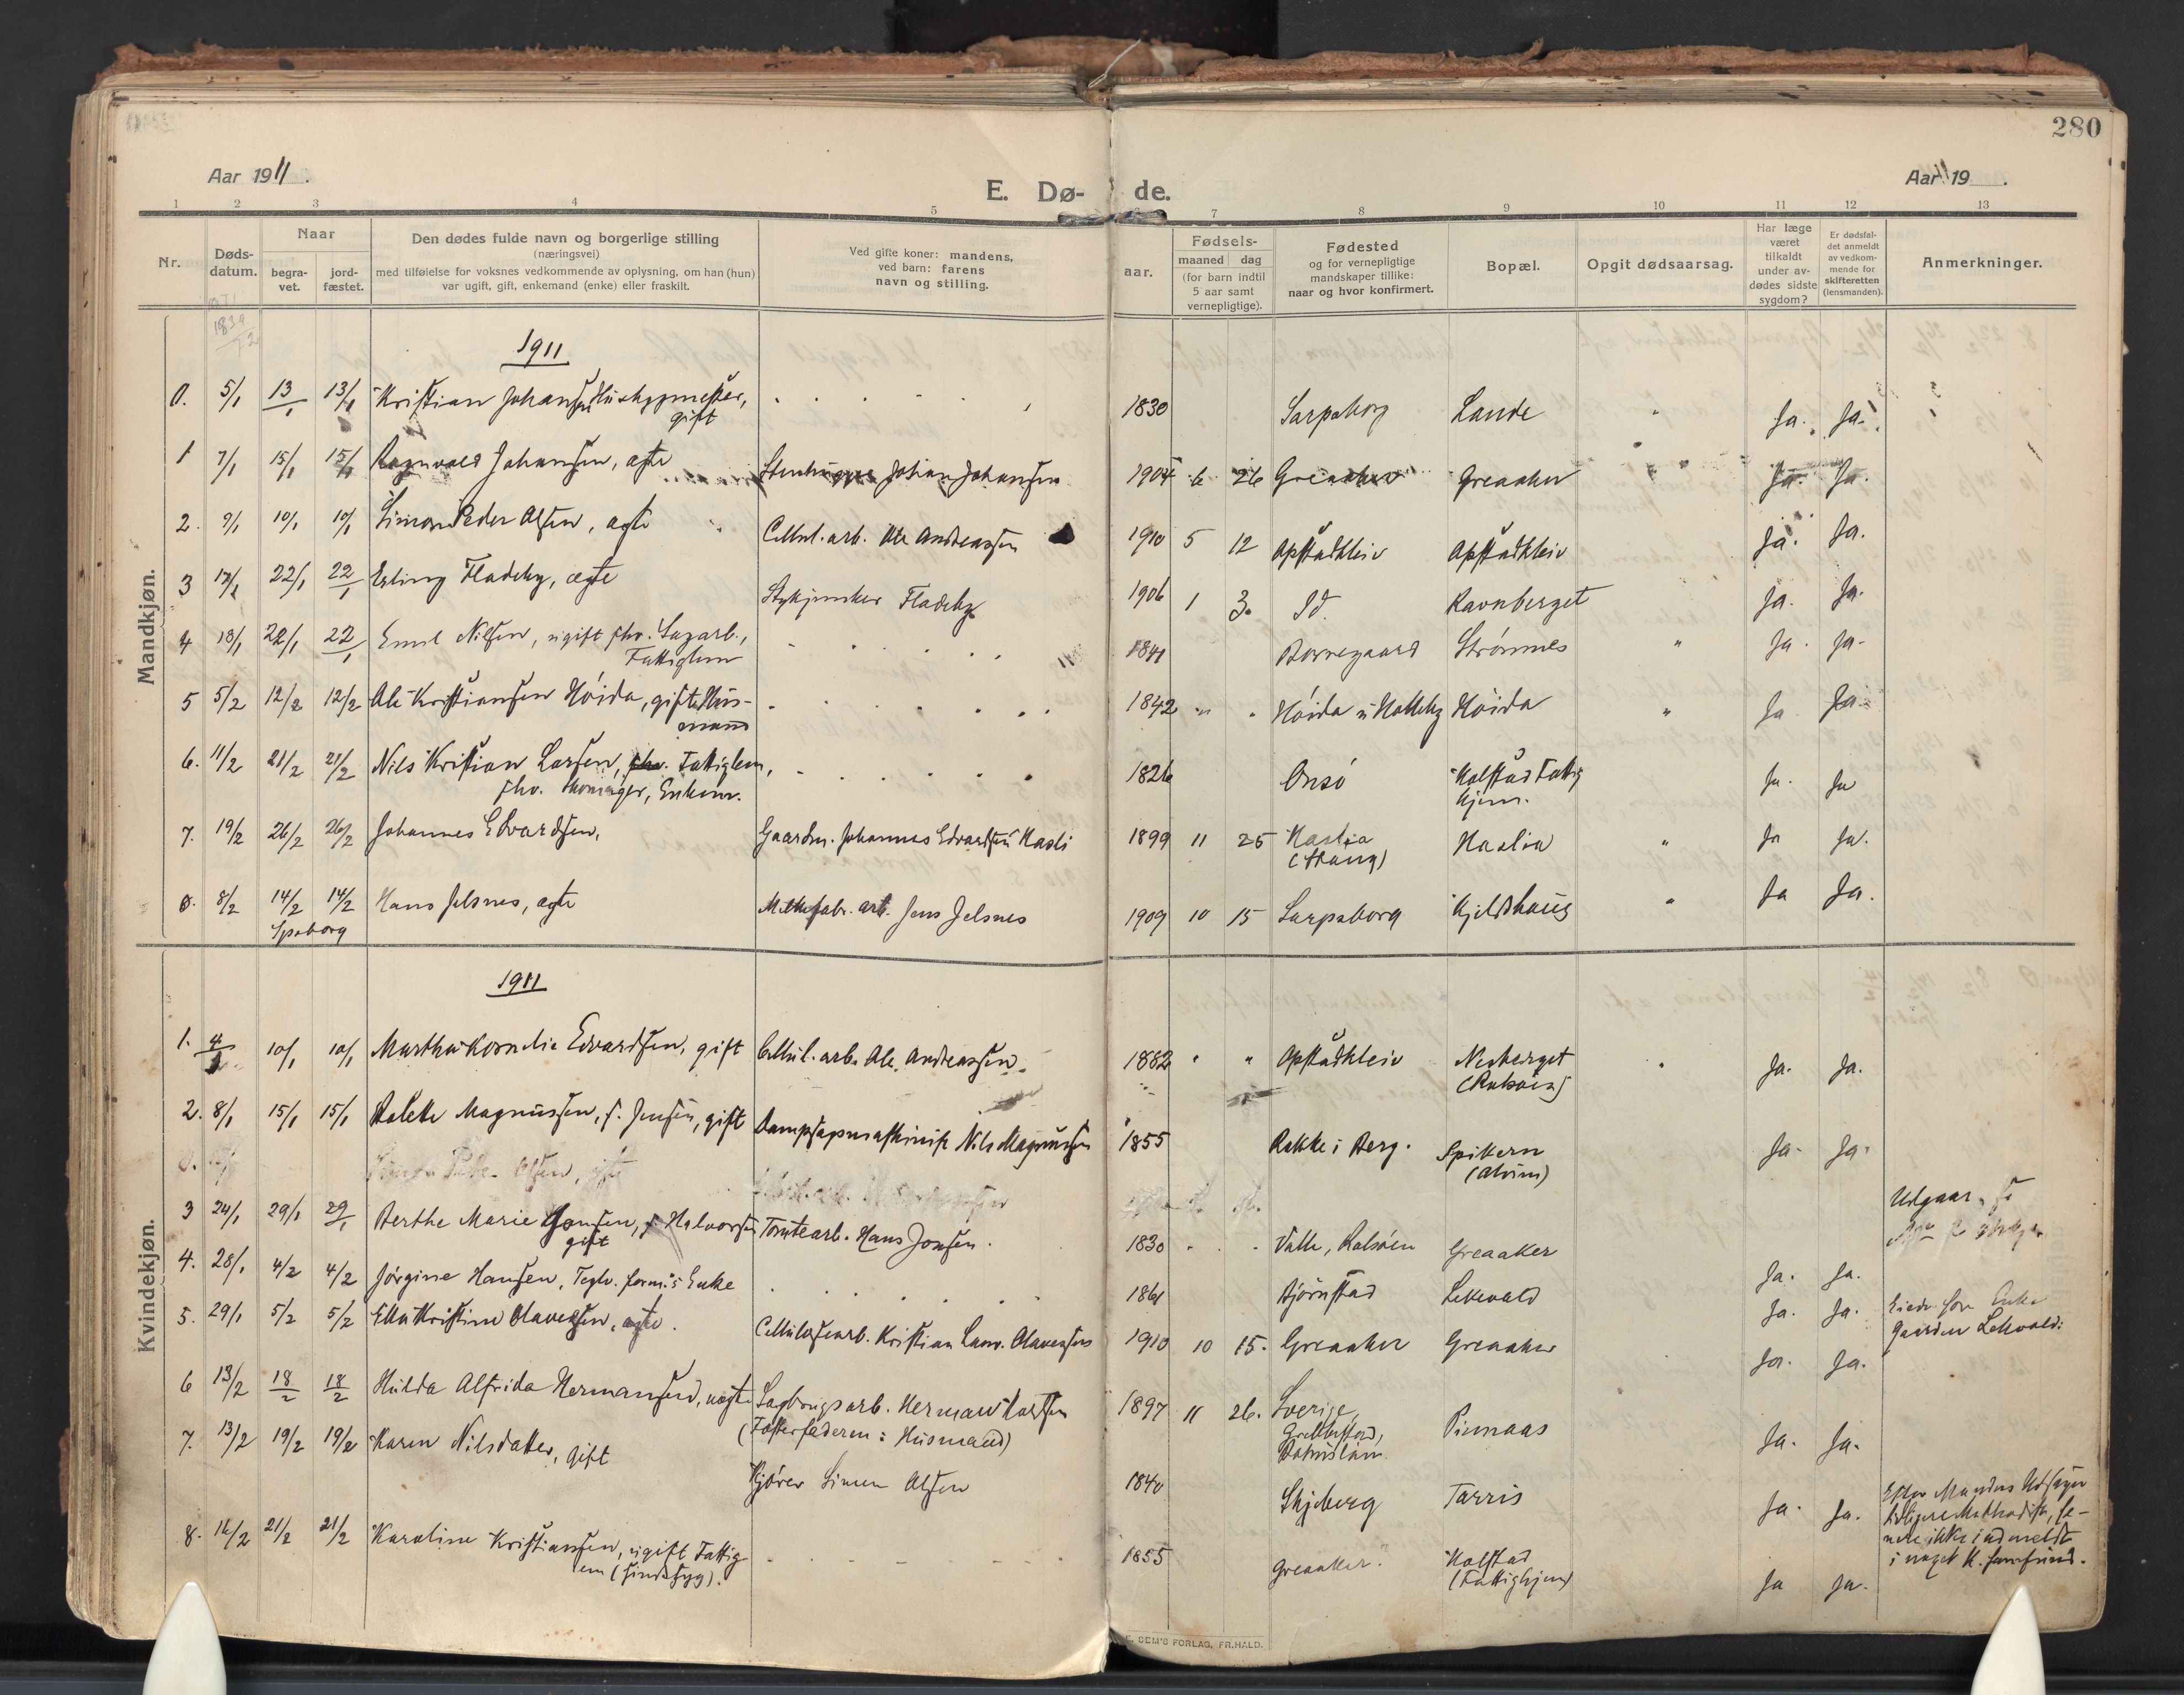 280
Aar 1911.
E. Dø-de.
Aar 1911.
1 2 3 4 5 7 8 9 10 11 12 13
Nr.
Døds-
datum.
Naar
begra-
vet.
jord-
fæstet.
Den dødes fulde navn og borgerlige stilling
(næringsvei)
med tilføielse for voksnes vedkommende av oplysning, om han (hun)
var ugift, gift, enkemand (enke) eller fraskilt.
Ved gifte koner: mandens,
ved barn: farens
navn og stilling.
aar.
Fødsels-
maaned dag
(for barn indtil
5 aar samt
vernepligtige).
Fødested
og for vernepligtige
mandskaper tillike:
naar og hvor konfirmert.
Bopæl.
Opgit dødsaarsag.
Har læge
været
tilkaldt
under av-
dødes sidste
sygdom?
Er dødsfal-
det anmeldt
av vedkom-
mende for
skifteretten
(lensmanden).
Anmerkninger.
Mandkjøn.
1911
0. 5/1 13/1 13/1 Kristian Johansen Husbygmester, 1830 Sarpsborg Lande " Ja. Ja.
gift
1 7/1 15/1 15/1 Ragnvald Johansen, ægte Stenhugger Johan Johansen 1904 6 26 Greaaker Greaaker " Ja. Ja.
2. 9/1 10/1 10/1 Simon Peder Olsen, ægte Cellul.arb. Ole Andreassen 1910 5 12 Opstadkleiv Opstadkleiv Ja. Ja.
3 17/1 22/1 22/1 Erling Fladeby, ægte Stykjunker Fladeby 1906 1 3. Id. Ravnberget Ja. Ja.
4 18/1 22/1 22/1 Emil Nilsen, ugift fhv. Sagarb., 1841 Borregaard Strømnes " Ja. Ja.
Fattiglem
5 5/2 12/2 12/2 Ole Kristiansen Høida, gift Hus- 1842 " " Høida u Holleby Høida " Ja Ja.
mand
6. 11/2 21/2 21/2 Nils Kristian Larsen, fhv. Fattiglem, 1826 Onsø Kalstad Fattig Ja. Ja
fhv. Skomager, Enkem. hjem.
7. 19/2 26/2 26/2 Johannes Edvardsen, Gaardm. Johannes Edvardsen Hasli 1899 11 25 Haslia Haslia " Ja Ja.
8/2 14/2 14/2 Hans Jelsnes, ægte Melkefabr. arb. Jens Jelsnes 1909 10 15 Sarpsborg Kjeldshaug " Ja Ja.
Spsborg
Kvindekjøn.
1911
1. 4/1 10/1 10/1 Martha Kornelia Edvardsen, gift Cellul.arb. Ole Andreassen. 1882 " " Opstadkleiv Nesberget " Ja. Ja.
2. 8/1 15/1 15/1 Magnussen, f. Jensen, gift Dampsagsmaskinist Nils Magnussen 1855 Rakke i Berg. Spikern Ja. Ja.
(Alvim)
0. Simon Peder Olsen, ægte
Udgaar
3 24/1 29/1 29/1 Berthe Marie Jonsen, f. Halvorsen Tomtearb. Hans Jonsen. 1830 " " Valle, Rolsøen Greaaker Ja. Ja.
gift
4. 28/1 4/2 4/2 Jørgine Hansen, Teglv. Enke 1861 Bjørnstad Lekevold Ja. Ja.
Gaarden Lekvold.
5. 29/1 5/2 5/2 Ella Kristine Olavesen, ægte. Cellulosearb. Kristian Laur. Olavesen 1910 10 15. Greaaker Greaaker Ja. Ja.
6 13/2 18/2 18/2 Hulda Alfrida Hermansen, uægte Sagbrugsarb. Herman Karlsen 1897 11 26. Sverige, Pinnaas Ja. Ja.
(Fosterfaderen: Husmand) Grebbestad,
Bohuslän
7. 13/2 19/2 19/2 Karen Nilsdatter, gift Kjører Simen Olsen 1840 Skjeberg Tarris Ja. Ja. Efter Mandens Udsagn
tidligere Methodist, se-
nere ikke indmeldt
i noget K. samfund.
8. 16/2 21/2 21/2 Karoline Kristiansen, ugift Fattig 1855 Greaaker. Kalstad Ja Ja.
lem (sindssyg). (Fattighjem)
SEM'S FORLAG, FR.HALD.